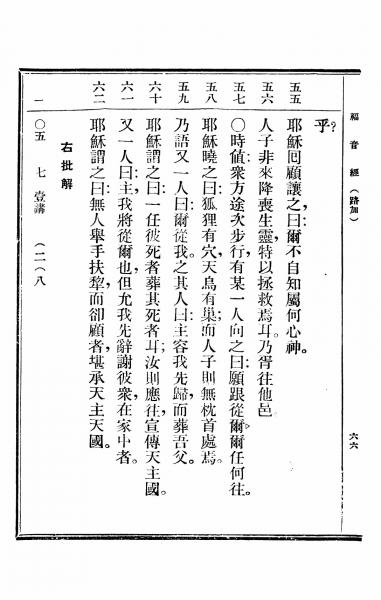 福音經（路加）
六六
乎？
五五 耶穌囘顧讓之：曰：爾不自知屬何心神。
五六 人子非來降喪生靈，特以拯救焉耳。乃胥往他邑
五七 〇時値衆方途次步行，有某一人向之曰：願跟從爾爾任何往。
五八 耶穌曉之曰：狐狸有穴，天鳥有巢；而人子則無枕首處焉。
五九 乃語又一人曰：爾從我。之其人曰：主容我先歸，而葬吾父。
六十 耶穌謂之曰：一任彼死者葬其死者耳；汝則應往，宣傳天主國。
六一 又一人曰：主，我將從爾也，但允我先辭謝彼衆，在家中者。
六二 耶穌謂之曰：無人舉手扶犂，而卻顧者，堪承天主天國。
右批解
一〇五 七 壹講 （二八